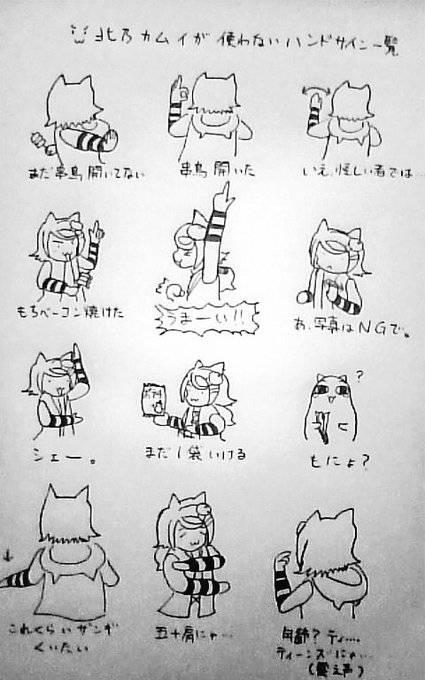 北乃カムイが使わないハンドサイン一覧
まだ串鳥開いてない
串鳥開いた
いえ、怪しい者では…
もろベーコン焼けた
うまーい!!
あ、写真はNGで。
シェー。
まだ1袋いける
?
もにょ?
これくらいザンギくいたい
五十肩にゃ…
年齢?ティ….
ティーンズにゃ…
(震え声)